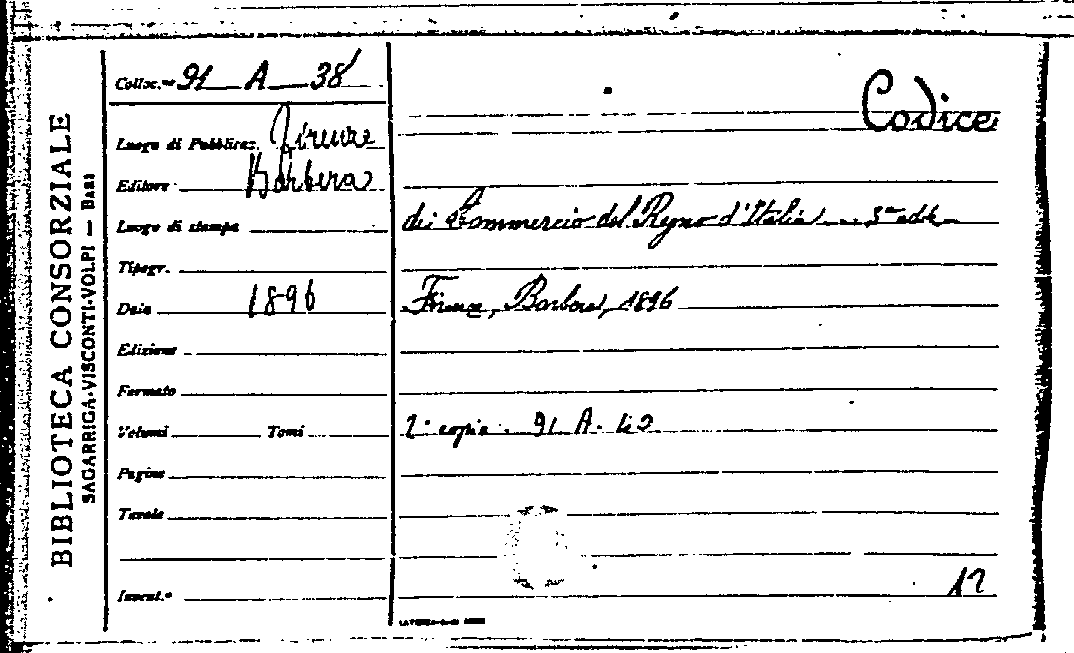 BIBLIOTECA CONSORZIALE
SAGARRIGA-VISCONTI-VOLPI — BARI
Colloc.ne 91 A 38
Luogo di Pubblicaz. Firenze
Editore Barbera
Luogo di stampa
Tipogr.
Data 1896
Edizione
Formato
Volumi Tomi
Pagine
Tavole
Invent.o
Codice
di Commercio del Regno d'Italia
Firenze, Barbera, 1896
2a copia. 91. A. 42
12